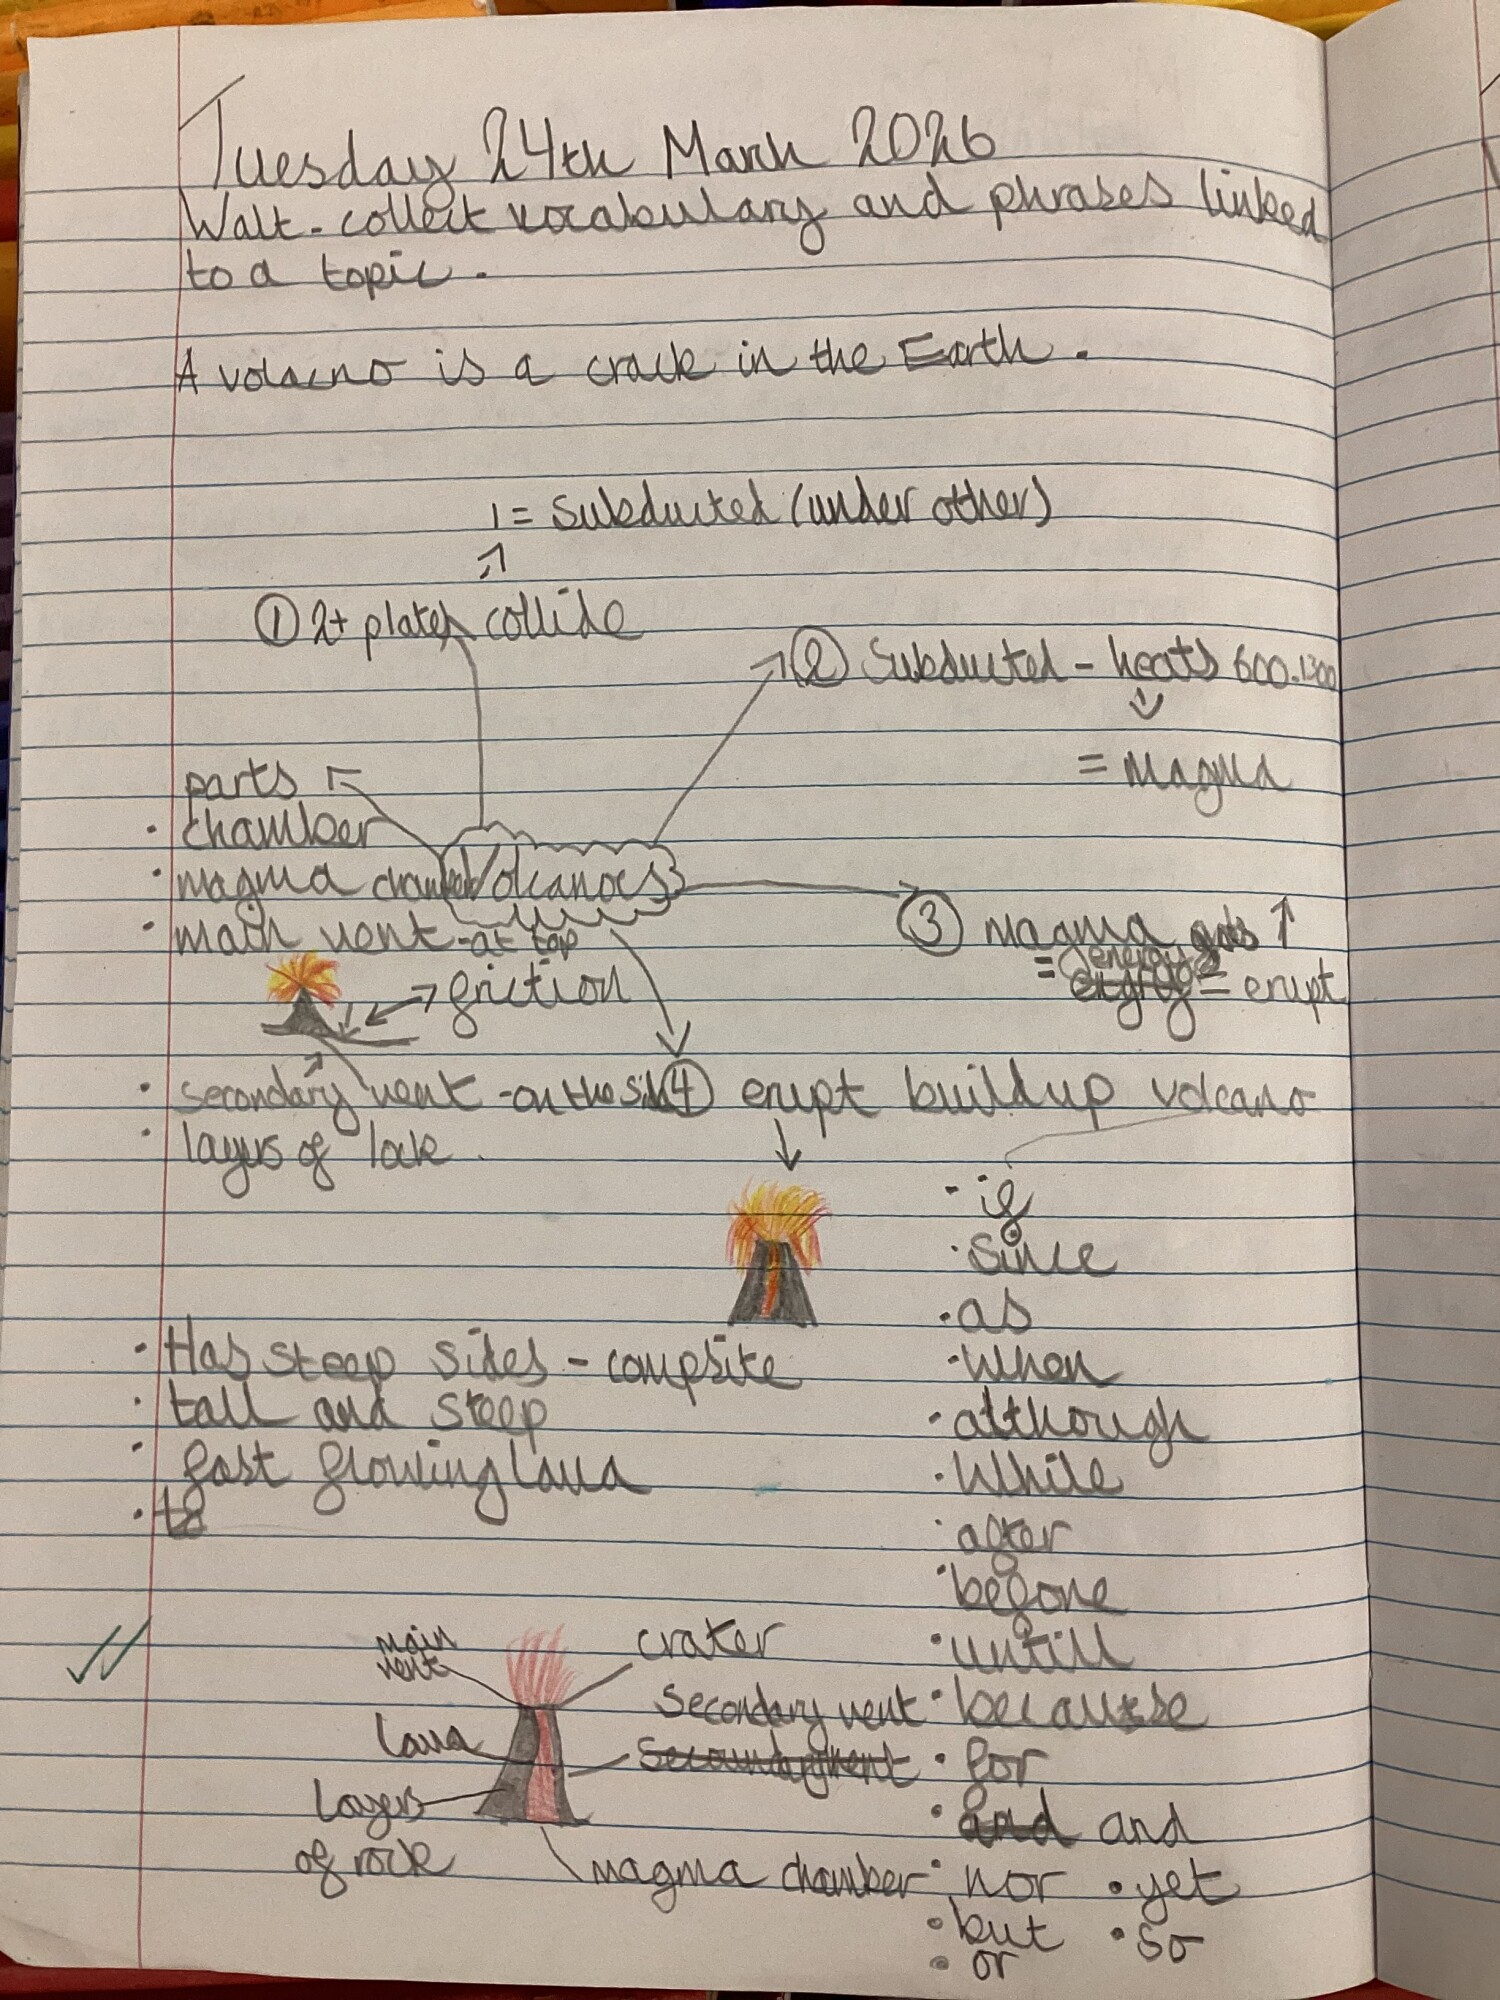 Tuesday 24th March 2026
Walt - collect vocabulary and phrases linked
to a topic.
A volacno is a crack in the Earth.
1 = Subducted (under other)
① 2+ plates collide
② Subducted - heats 600-1300
= Magma
parts
• chamber
• magma chamber
Volcanoes
• main vent - at top
③ magma gets ↑
= energy = erupt
friction
• secondary vent - on the side
④ erupt build up volcano
• layers of lock.
• if
• since
• as
• when
• although
• While
• after
• before
• untill
• because
• for
• and and
• nor • yet
• but • so
• or
• Has steep sides - compsite
• tall and steep
• fast flowing lava
main
vent
crater
Secondary vent
Lava
Layers
of rock
magma chamber